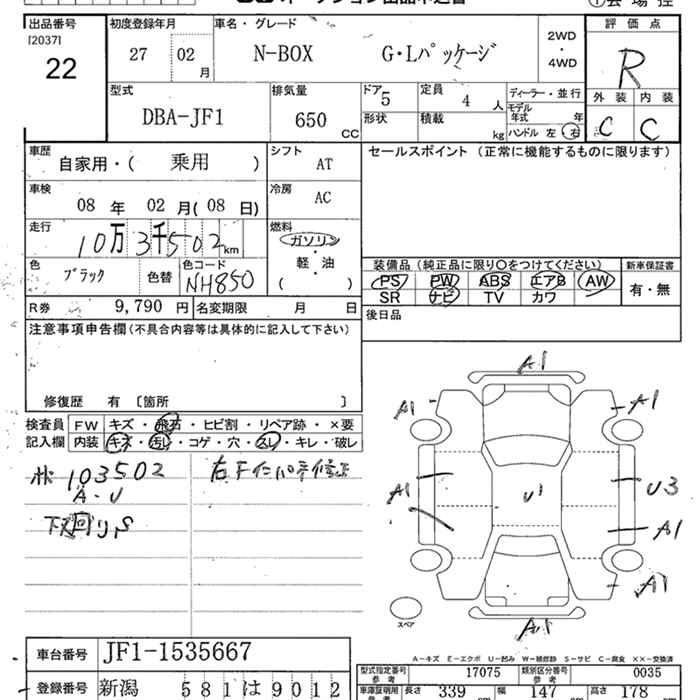 オークション出品申込書
出品番号
[2037]
22
初度登録年月
27 02月
車名・グレード
N-BOX G・Lパッケージ
2WD
・
4WD
評価点
R
外装 内装
C C
型式
DBA-JF1
排気量
650 CC
ドア 5
定員 4 人
形状
積載 kg
ディーラー・並行
モデル年式 年
ハンドル 左 右
車歴
自家用・( 乗用 )
シフト
AT
セールスポイント (正常に機能するものに限ります)
車検
08 年 02 月( 08 日)
冷房
AC
走行
10万3千502 km
燃料
ガソリン
軽・油
( )
色
ブラック
色替
色コード
NH850
装備品 (純正品に限り○をつけてください)
新車保証書
PS PW ABS エアB AW
SR ナビ TV カワ
有・無
R券 9,790 円
名変期限 月 日
後日品
注意事項申告欄(不具合内容等は具体的に記入して下さい)
修復歴 有 〔箇所 〕
検査員記入欄
FW キズ・飛石・ヒビ割・リペア跡・×要
内装 キズ・汚レ・コゲ・穴・スレ・キレ・破レ
103502
A・U
下回りS
A1
A1 A1
A1 U1 U3
A1
A1
A1
スペア
A-キズ E-エクボ U-凹み W-補修跡 S-サビ C-腐食 XX-交換済
車台番号 JF1-1535667
型式指定番号 参考 17075
類別区分番号 参考 0035
登録番号 新潟 581 は 9012
車庫証明用 参考 長さ 339 cm 幅 147 cm 高さ 178 cm